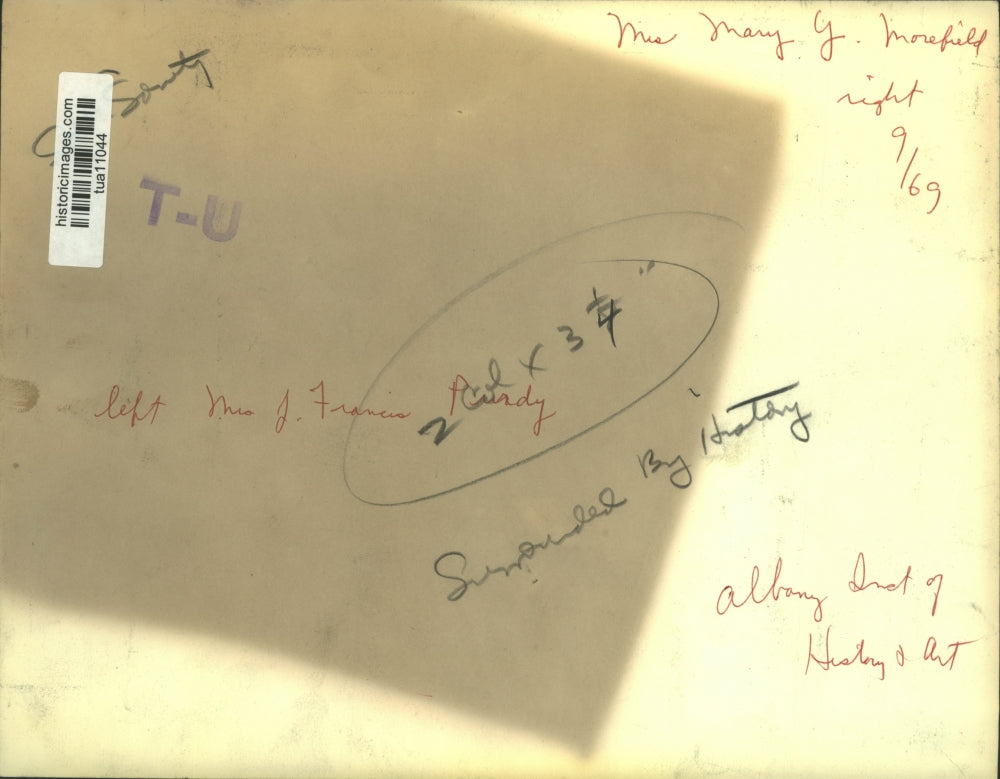 Mrs Mary Y. Morefield
right
9/69
historicimages.com
tua11044
T-U
2 Col x 3 1/4"
left Mrs J. Francis Purdy
Surrounded By History
Albany Inst of
History & Art